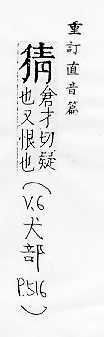 重訂直音篇
猜
倉才切疑
也又恨也
(V.6
犬部
P.516
)